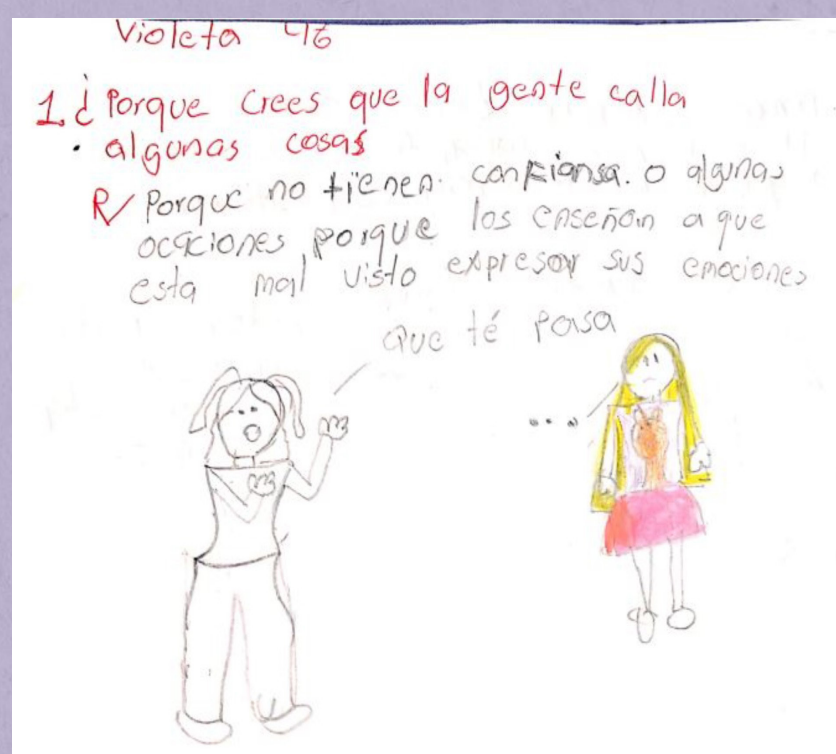 Violeta 46
1. ¿Porque crees que la gente calla
algunas cosas
R/ Porque no tienen. confiansa. o algunas
ocaciones porque los enseñan a que
esta mal visto expresar sus emociones
que té pasa
...